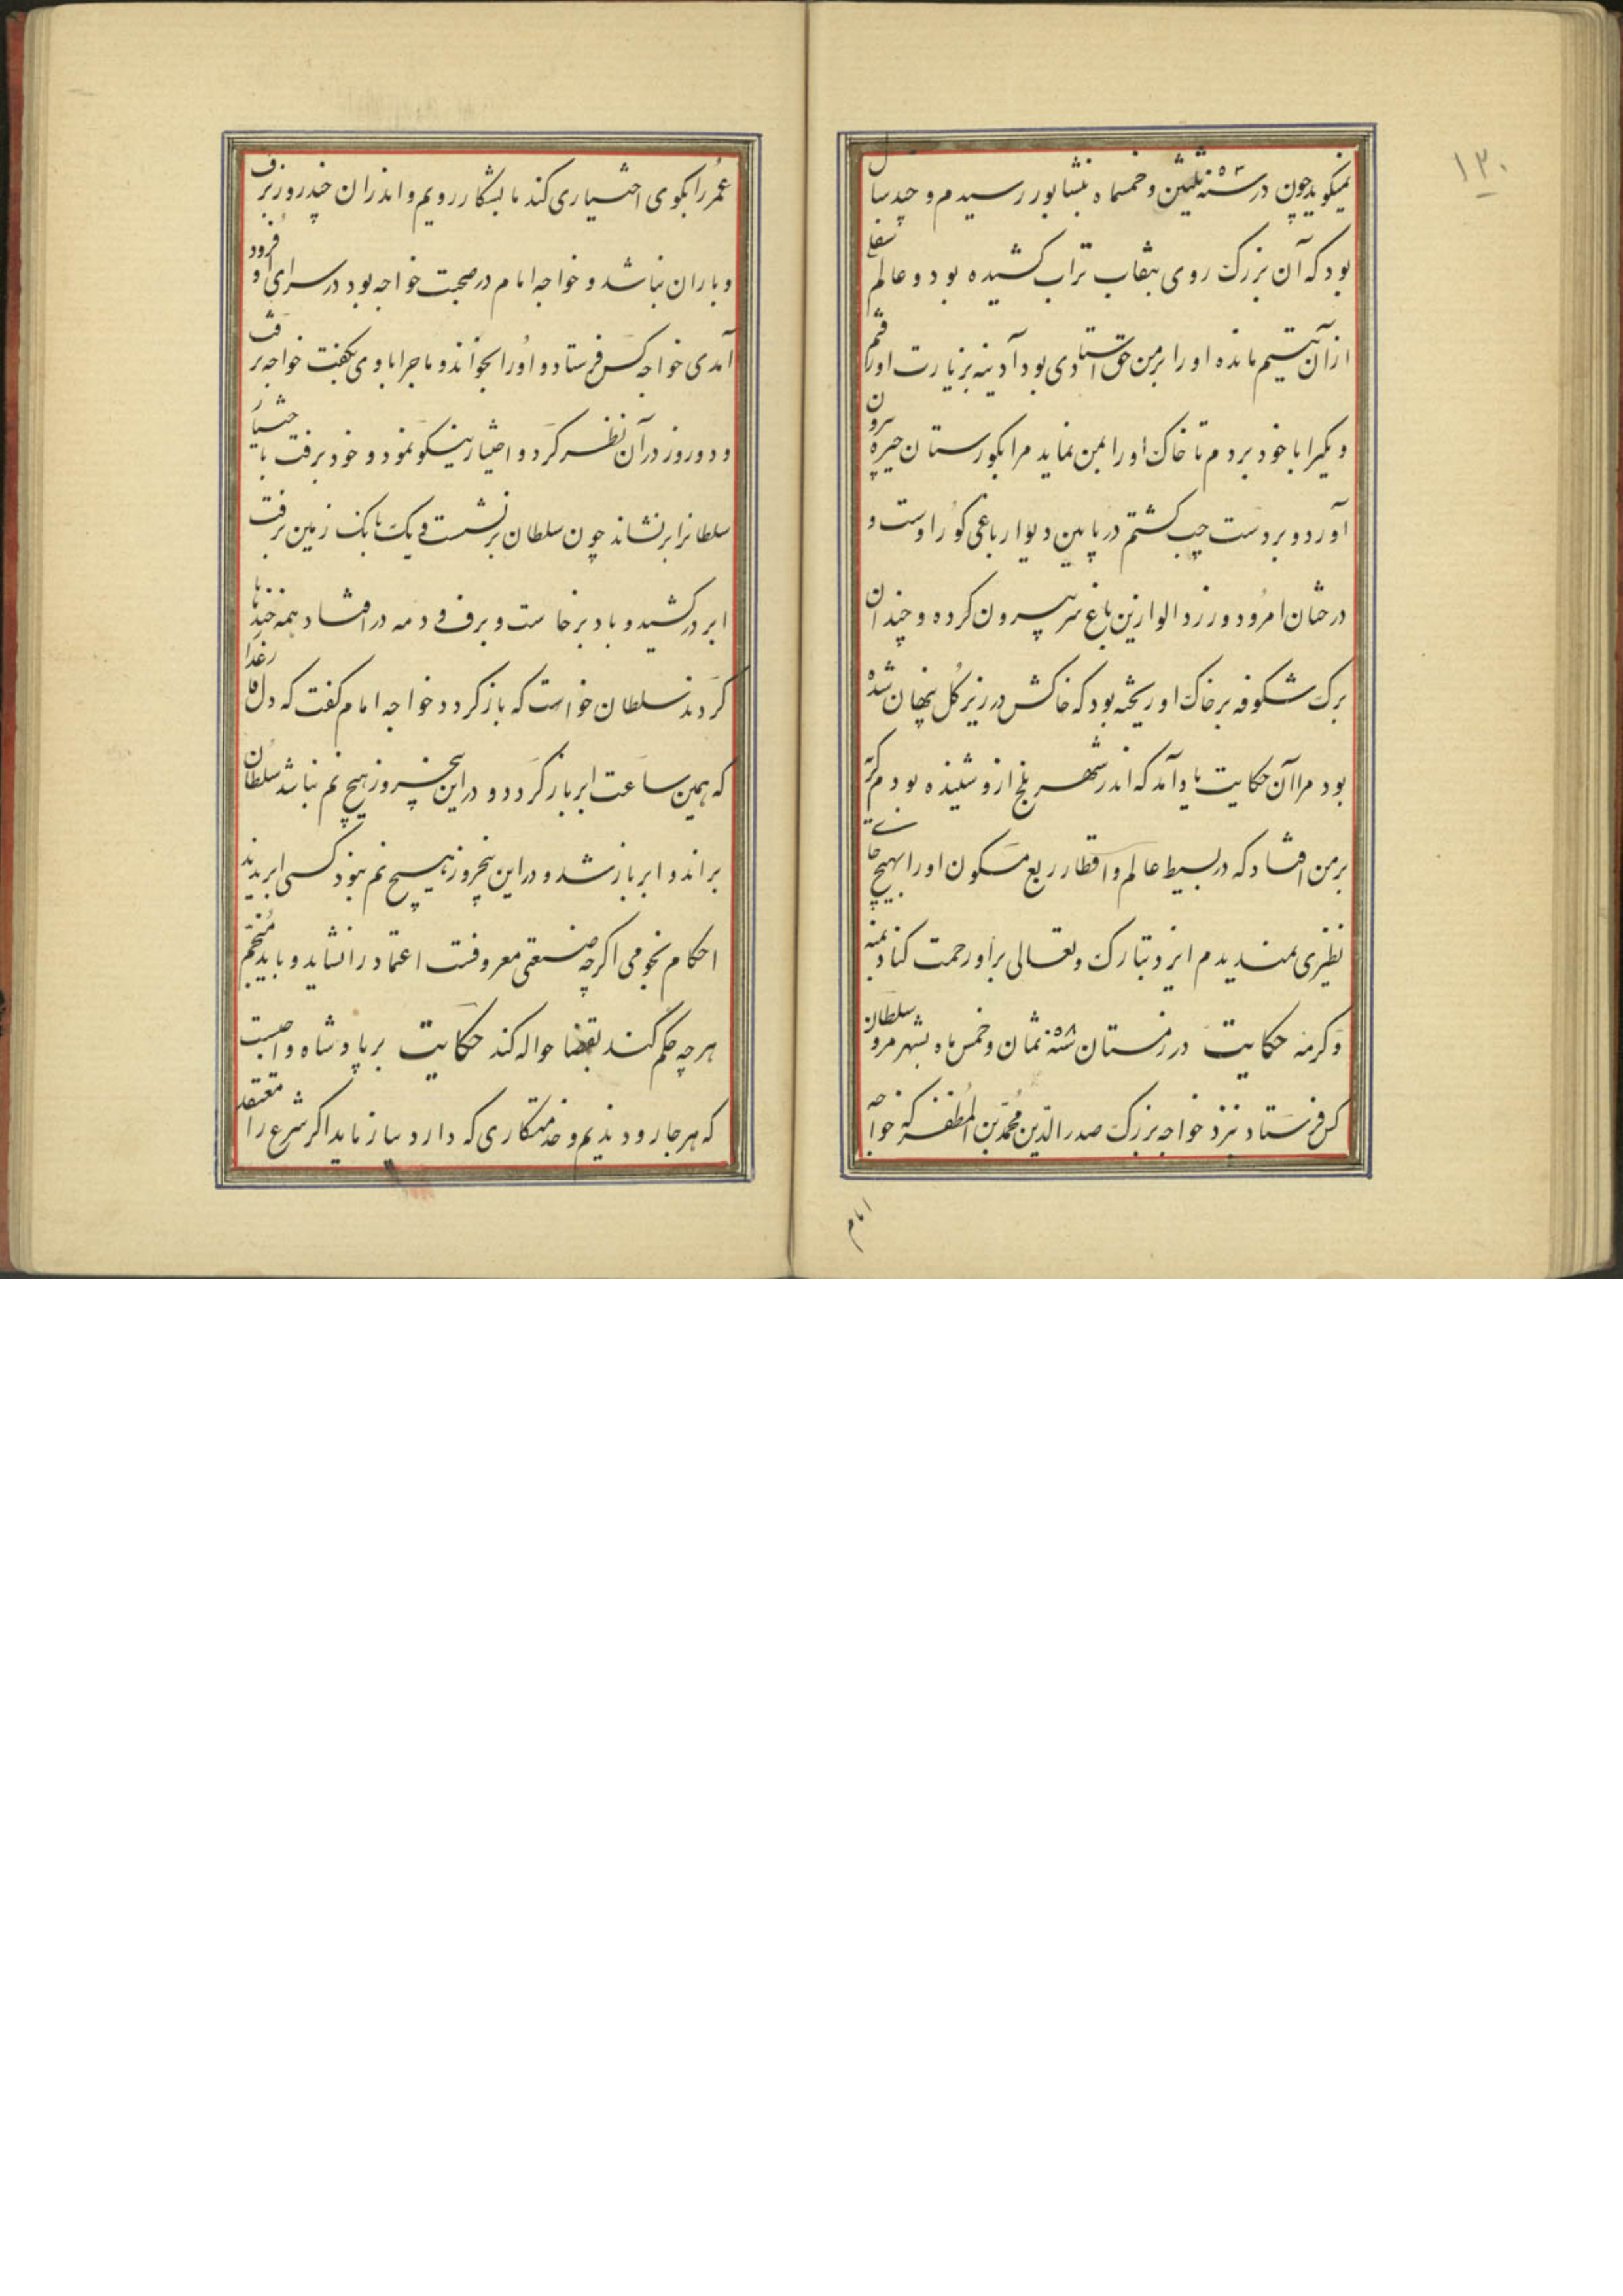 ۱۳۰
نمیگوید چون در سنه ۵۳۰ ثلثین و خمسماه بنشابور رسیدم و چند سال
بود که آن بزرک روی بنقاب تراب کشیده بود و عالم سفلی
ازان یتیم مانده او را بر من حق استادی بود آدینه بزیارت او رفتم
و یکیرا با خود بردم تا خاک او را بمن نماید مرا بکورستان حیره بیرون
آورد و بر دست چپ کشتم در پایین دیوار باغی کور اوست و
درختان امرود و زرد الو ازین باغ سر بیرون کرده و چندان
برک شکوفه بر خاک او ریخته بود که خاکش در زیر کل پنهان شده
بود مرا آن حکایت یاد آمد که اندر شهر بلخ ازو شنیده بودم کریه
بر من افتاد که در بسیط عالم و اقطار ربع مسکون او را بهیچ جائی
نظیری نمیدیدم ایزد تبارک و تعالی بر او رحمت کناد بمنه
و کرمه حکایت در زمستان سنه ۵۰۸ ثمان و خمس ماه بشهر مرو سلطان
کس فرستاد بنزد خواجه بزرک صدر الدین محمد بن المظفر که خواجه
امام
عمر را بکوی اختیاری کند تا بشکار رویم و اندران چند روز برف
و باران نباشد و خواجه امام در صحبت خواجه بود در سرای او فرود
آمدی خواجه کس فرستاد و او را بخواند و ماجرا با وی بکفت خواجه برفت
و دو روز در آن نظر کرد و اختیار نیکو نمود و خود برفت با ختیار
سلطانرا بر نشاند چون سلطان بر نشست و یک بانک زمین برفت
ابر در کشید و باد برخاست و برف و دمه در افتاد همه خندها
کردند سلطان خواست که باز کردد خواجه امام کفت که دل فارغدار
که همین ساعت ابر باز کردد و در این پنجروز هیچ نم نباشد سلطان
براند و ابر باز شد و در این پنجروز هیچ نم نبود کسی ابر ندید
احکام نجومی اکرچه صنعتی معروفست اعتماد را نشاید و باید منجم
هرچه حکم کند بقضا حواله کند حکایت بر پادشاه واجبست
که هر جا رود ندیم و خدمتکاری که دارد بیازماید اکر شرع را معتقد